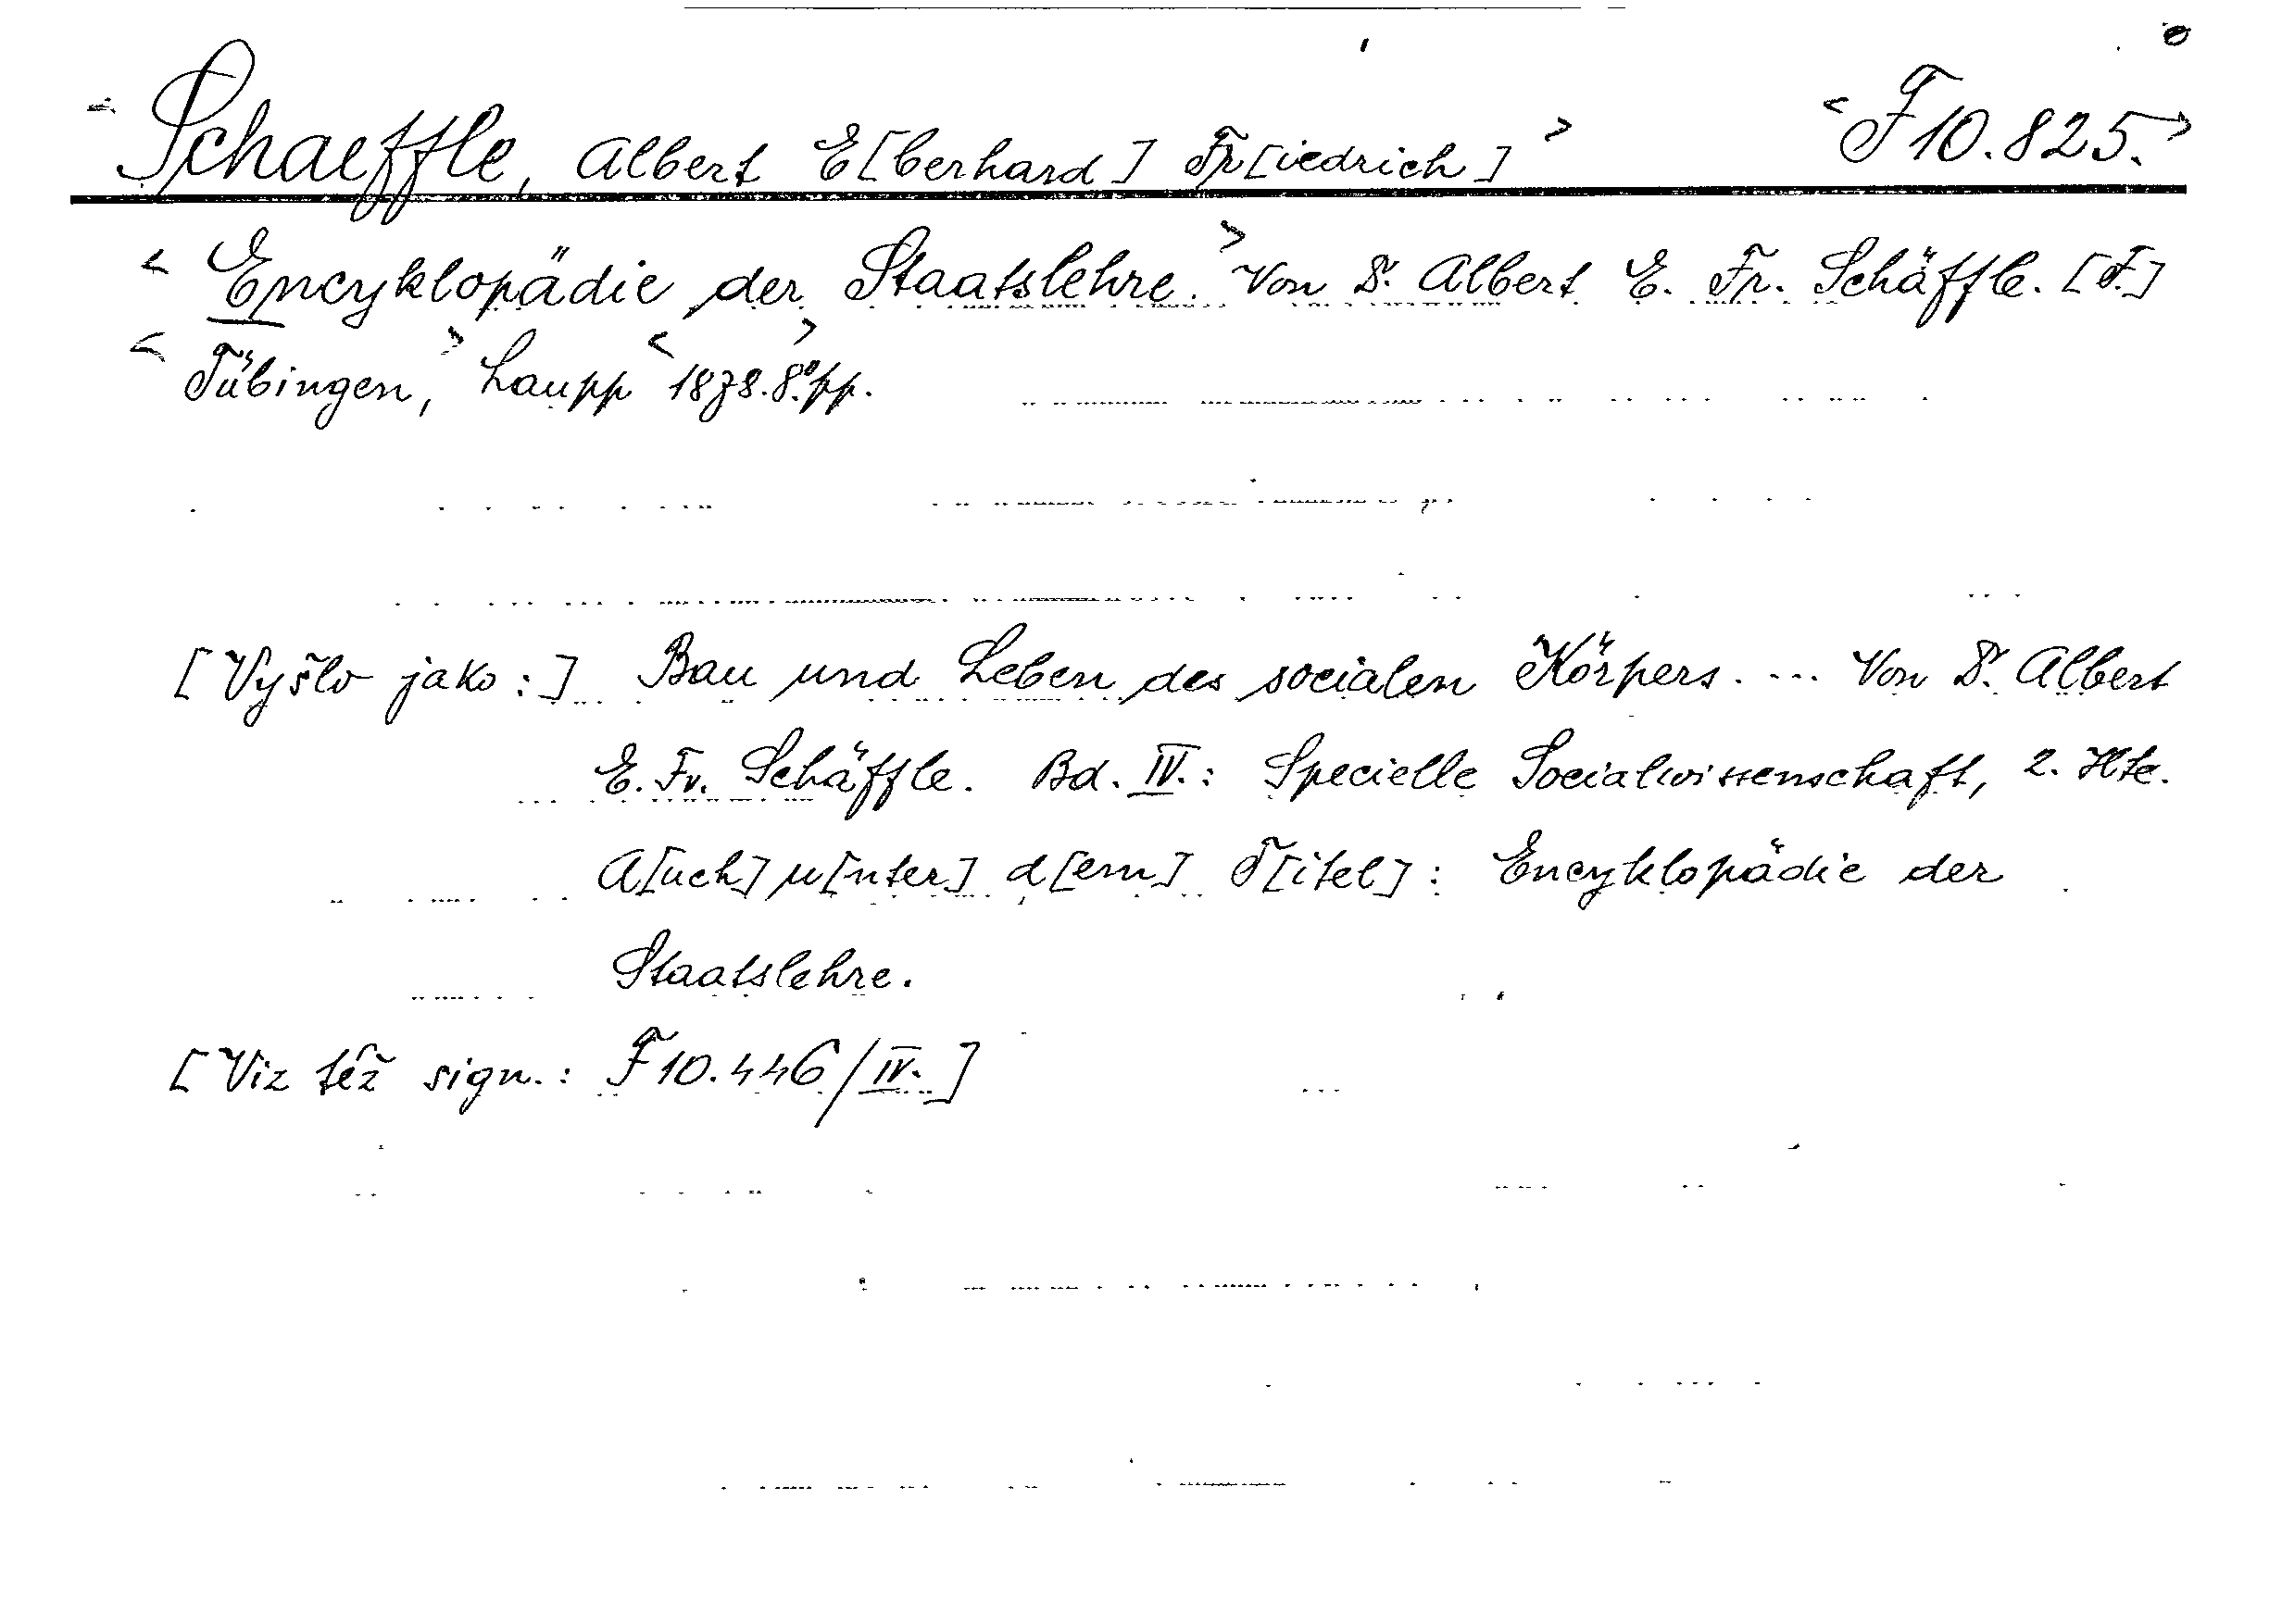 <Schaeffle, Albert E[berhard] Fr[iedrich]> <F 10.825.>
<Encyklopädie der Staatslehre.> Von Dr. Albert E. Fr. Schäffle. [F.]
<Tübingen,> Laupp <1878. 8°.> pp.
[Vyšlo jako:] Bau und Leben des socialen Körpers. ... Von Dr. Albert
E. Fr. Schäffle. Bd. IV.: Specielle Socialwissenschaft, 2. Hte.
A[uch] u[nter] d[em] T[itel]: Encyklopädie der
Staatslehre.
[Viz též sign.: F 10.446/IV.]